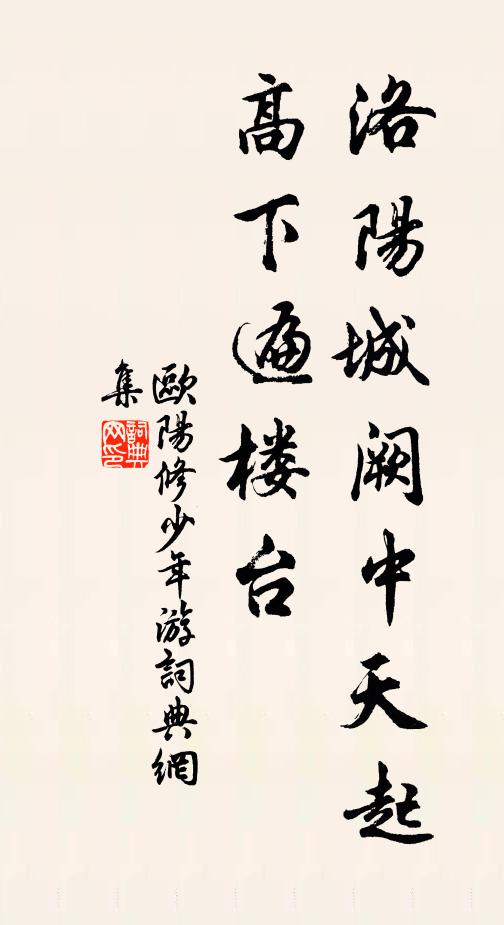 洛陽城阙中天起
高下遍楼台
歐陽修少年游詞典網
集
詞典
网印